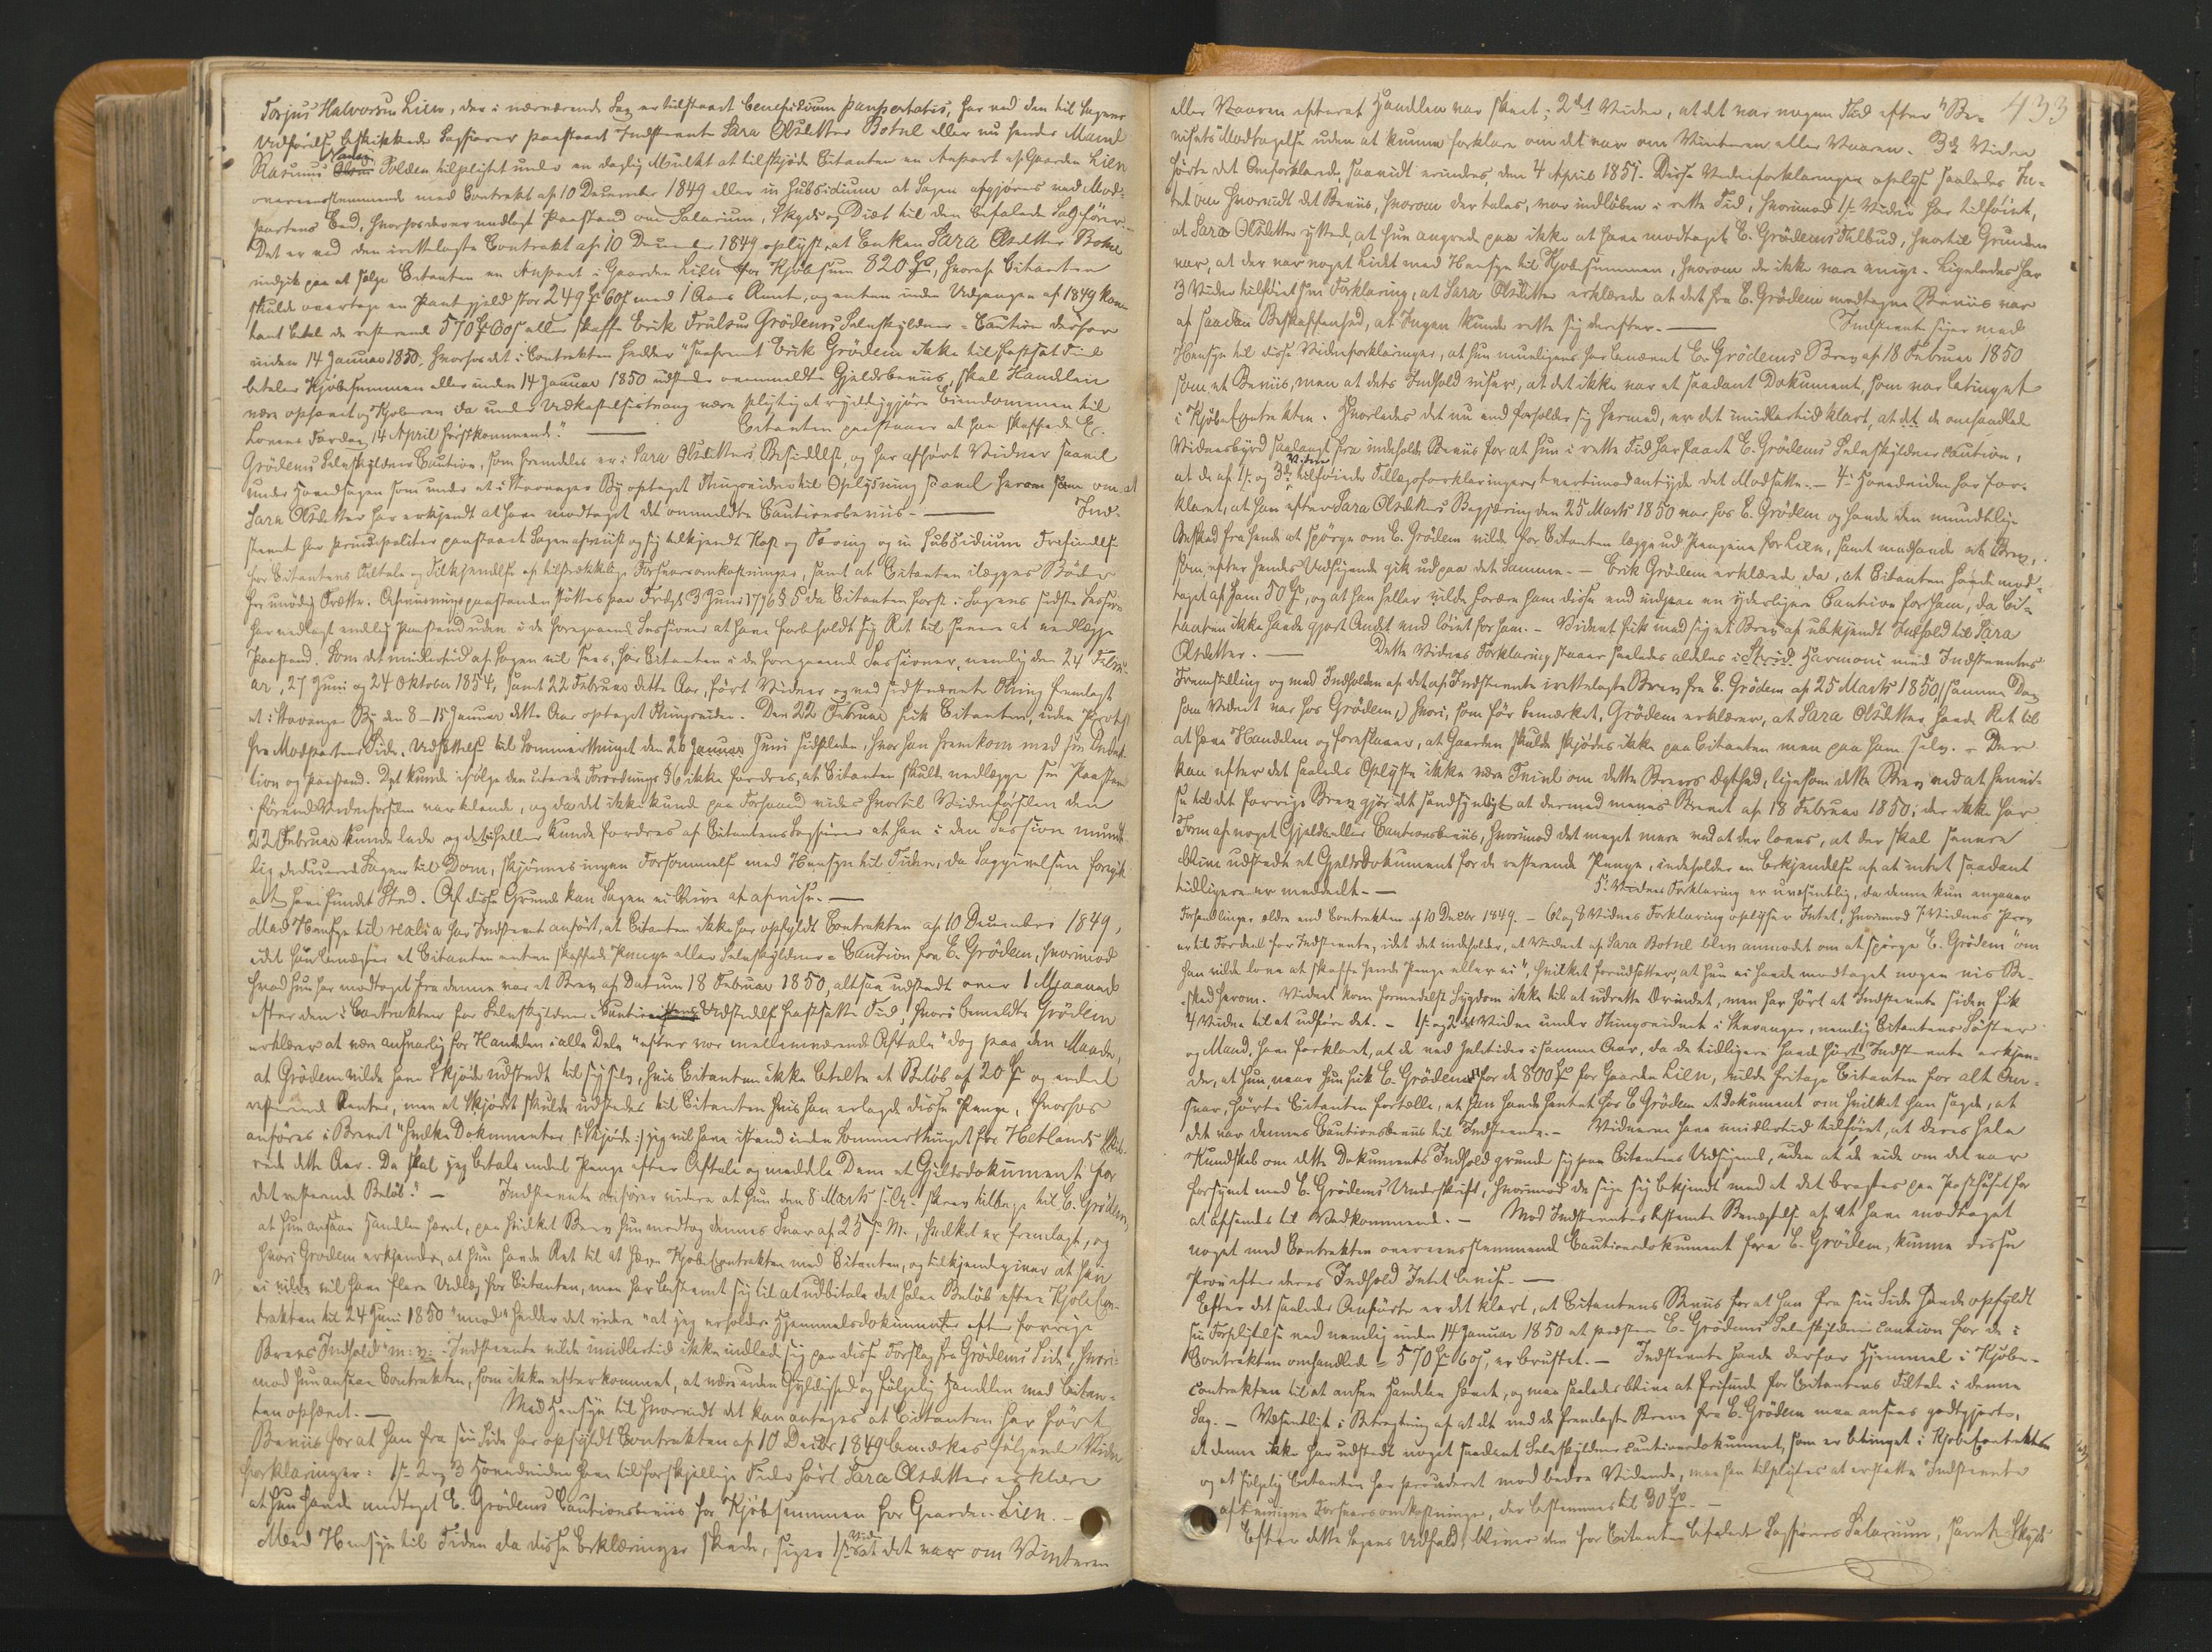 Torjus Halvorsen Lien, der i nærværende Sag er tilstaaet beneficium paupertatis, har ved den til Sagens
Udførelse beskikkede Sagfører paastaaet Indstevnte Sara Olsdatter Botnl eller nu hendes Mand
Rasmus Hansen Polden tilpligtet under en daglig Mulkt at tilskjøde Citanten en Anpart af Gaarden Lien
overeensstemmende med Contrakt af 10 December 1849 eller in subsidium at Sagen afgjøres ved Mod-
partens Eed, hvorhos der er nedlagt Paastand om Salarium, Skyds og Diæt til den befalede Sagfører.-
Det er ved den irettelagte Contrakt af 10 December 1849 oplyst, at Enken Sara Olsdatter Botnl
indgik paa at sælge Citanten en Anpart i Gaarden Lien for Kjøbesum 820 Spd, hvoraf Citanten
skulde overtage en Pantegjeld stor 249 Spd 60 s med 1 Aars Rente, og enten inden Udgangen af 1849 kon-
tant betale de resterende 570 Spd 60 s eller skaffe Erik Trulsen Grødems Selvskyldner-Caution derfor
inden 14 Januar 1850. Hvorhos det i Contrakten hedder "saafremt Erik Grødem ikke til fastsat Tid
betaler Kjøbesummen eller inden 14 Januar 1850 udsteder ovenmeldte Gjeldsbeviis, skal Handlen
være ophævet og Kjøberen da under Udkastelsestvang være pligtig at ryddiggjøre Eiendommen til
Lovens Fardag 14 April førstkommende." — Citanten paastaaer at han skaffede E.
Grødems Selvskyldner Caution, som fremdeles er i Sara Olsdatters Besiddelse, og har afhørt Vidner saavel
under Hovedsagen som under et i Stavanger By optaget Thingsvidne til Oplysning saavel herom som om at
Sara Olsdatter har erkjendt at have modtaget det ommeldte Cautionsbeviis.- — Ind-
stevnte har principaliter paastaaet Sagen afviist og sig tilkjendt Kost og Tæring og in subsidium Frifindelse
for Citantens Tiltale og Tilkjendelse af tilstrækkelige Forsvarsomkostninger, samt at Citanten ilægges Bøder
for unødig Trætte. Afviisningspaastanden støttes paa Frdg. 3 Juni 1796 § 5 da Citanten først i Sagens sidste Session
har nedlagt endelig Paastand uden i de foregaaende Sessioner at have forbeholdt sig Ret til senere at nedlægge
Paastand. Som det imidlertid af Sagen vil sees, har Citanten i de foregaaende Sessioner, nemlig den 24 Febru-
ar, 27 Juni og 24 Oktober 1854, samt 22 Februar dette Aar, ført Vidner og ved sidstnævnte Thing fremlagt
et i Stavanger By den 8-15 Januar dette Aar optaget Thingsvidne. Den 22 Februar fik Citanten, uden Protest
fra Modpartens Side, Udsættelse til Sommerthinget den 26 Juni sidstleden, hvor han fremkom med sin Deduk-
tion og Paastand. Det kunde ifølge den citerede Forordnings § 6 ikke fordres, at Citanten skulde nedlægge sin Paastand
førend Vidneførslen var tilende, og da det ikke kunde paa Forhaand vides hvortil Vidneførslen den
22 Februar kunde lede og det ei heller kunde fordres af Citantens Sagfører at han i den Session mundt-
lig deducerede Sagen til Dom, skjønnes ingen Forsømmelse med Hensyn til Tiden, da Saggivelsen foregik
at have fundet Sted. Af disse Grunde kan Sagen ei blive at afvise. —
Med Hensyn til realia har Indstevnte anført, at Citanten ikke har opfyldt Contrakten af 10 December 1849,
idet hun benægter at Citanten enten skaffede Penge eller Selvskyldner-Caution fra E. Grødem, hvorimod
hvad hun har modtaget fra denne var et Brev af Datum 18 Februar 1850, altsaa udstedt over 1 Maaned
efter den i Contrakten for Selvskyldner Cautions Udstedelse fastsatte Tid, hvori bemeldte Grødem
erklærer at være ansvarlig for Handelen i alle Dele "efter vor mellemværende Aftale" dog paa den Maade,
at Grødem vilde have Skjøde udstedt til sig selv, hvis Citanten ikke betalte et Beløb af 20 Spd og endeel
resterende Renter, men at Skjødet skulde udstedes til Citanten hvis han erlagde disse Penge, hvorhos
anføres i Brevet "hvilke Dokumenter (: Skjøde :) jeg vil have istand inden Sommerthinget for Hetlands Skib-
rede dette Aar. Da skal jeg betale endeel Penge efter Aftale og meddele Dem et Gjeldsdokument for
det resterende Beløb." — Indstevnte anfører videre at hun den 8 Marts s. A. skrev tilbage til E. Grødem,
at hun ansaae Handlen hævet, paa hvilket Brev hun modtog dennes Svar af 25 s. M., hvilket er fremlagt, og
hvori Grødem erkjender, at hun havde Ret til at hæve Kjøbecontrakten med Citanten, og tilkjendegiver at han
ei vil have flere Udlæg for Citanten, men har bestemt sig til at udbetale det hele Beløb efter Kjøbecon-
trakten til 24 Juni 1850 "mod" hedder det videre "at jeg erholder Hjemmelsdokumenter efter forrige
Brevs Indhold" m: v: - Indstevnte vilde imidlertid ikke indlade sig paa disse Forslag fra Grødems Side, hvori-
mod hun ansaae Contrakten, som ikke efterkommet, at være uden Gyldighed og følgelig Handlen med Citan-
ten ophævet. — Med Hensyn til hvorvidt det kan antages at Citanten har ført
Beviis for at han fra sin Side har opfyldt Contrakten af 10 Decbr 1849 bemærkes følgende Vidne
forklaringer: 1ste 2 og 3 Hovedvidne have til forskjellige Tider hørt Sara Olsdatter erklære
at hun havde modtaget E. Grødems Cautionsbeviis for Kjøbesummen for Gaarden Lien. -
Med Hensyn til Tiden da disse Erklæringer skede, siger 1ste Vidne at det var om Vinteren
433
eller Vaaren efterat Handlen var skeet; 2det Vidne, at det var nogen Tid efter "Be-
visets" Modtagelse uden at kunne forklare om det var om Vinteren eller Vaaren. 3de Vidne
hørte det Omforklarede, saavidt erindres, den 4 April 1851. Disse Vidneforklaringer oplyse saaledes In-
tet om hvorvidt det Beviis, hvorom der tales, var indløben i rette Tid, hvorimod 1ste Vidne har tilføiet,
at Sara Olsdatter yttrede, at hun angrede paa ikke at have modtaget E. Grødems Tilbud, hvortil Grunden
var, at der var noget Lidt med Hensyn til Kjøbesummen, hvorom de ikke vare enige. Ligeledes har
3 Vidne tilføiet sin Forklaring, at Sara Olsdatter erklærede at det fra E. Grødem modtagne Beviis var
af saadan Beskaffenhed, at Ingen kunde rette sig derefter. — Indstevnte siger med
Hensyn til disse Vidneforklaringer, at hun mueligens har benævnt E. Grødems Brev af 18 Februar 1850
som et Beviis, men at dets Indhold viser, at det ikke var et saadant Dokument, som var betinget
i Kjøbecontrakten. Hvorledes det nu end forholder sig hermed, er det imidlertid klart, at det de omhandlede
Vidnesbyrd saalangt fra indeholde Beviis for at hun i rette Tid har faaet E. Grødems Selvskyldnercaution,
at de af 1ste og 3de Vidne tilføiede Tillægsforklaringer tvertimod antyde det Modsatte. - 4de Hovedvidne har for-
klaret, at han efter Sara Olsdatters Begjæring den 25 Marts 1850 var hos E. Grødem og havde den mundtlige
Besked fra hende at spørge om E. Grødem vilde for Citanten lægge ud Pengene for Lien, samt medhavde et Brev,
som efter hendes Udsigende gik ud paa det Samme. - Erik Grødem erklærede da, at Citanten havde mod-
taget af ham 50 Spd, og at han heller vilde forære ham disse end indgaae en yderligere Caution for ham, da Ci-
tanten ikke havde gjort Andet end løiet for ham. - Vidnet fik med sig et Brev af ubekjendt Indhold til Sara
Olsdatter. — Dette Vidnes Forklaring staaer saaledes aldeles i Harmoni med Indstevntes
Fremstilling og med Indholden af det af Indstevnte irettelagte Brev fra E. Grødem af 25 Marts 1850, (samme Dag
som Vidnet var hos Grødem,) hvori, som før bemærket, Grødem erklærer, at Sara Olsdatter havde Ret til
at hæve Handelen og foreslaaer, at Gaarden skulde skjødes ikke paa Citanten men paa ham selv. - Der
kan efter det saaledes Oplyste ikke være Tvivl om dette Brevs Ægthed, ligesom dette Brev ved at henvi-
se til det forrige Brev gjør det sandsynligt at dermed menes Brevet af 18 Februar 1850, der ikke har
Form af noget Gjelds eller Cautionsbeviis, hvorimod det meget mere ved at der loves, at der skal senere
blive udstedt et Gjeldsdokument for de resterende Penge, indeholder en Erkjendelse af at intet saadant
tidligere er meddeelt. - — 5te Vidnes Forklaring er uvæsentlig, da denne kun angaaer
Forhandlinger ældre end Contrakten af 10 Decbr 1849. - 6te og 8 Vidnes Forklaring oplyser Intet, hvorimod 7 Vidnes Prov
er til Fordeel for Indstevnte, idet det indeholder, at Vidnet af Sara Botnl blev anmodet om at spørge E. Grødem "om
han vilde love at skaffe hende Penge eller ei", hvilket forudsætter, at hun ei havde modtaget nogen vis Be-
sked herom. Vidnet kom formedelst Sygdom ikke til at udrette Ærindet, men har hørt at Indstevnte siden fik
4 Vidne til at udføre det. - 1ste og 2det Vidne under Thingsvidnet i Stavanger, nemlig Citantens Søster
og Mand, have forklaret, at de ved Juletider i samme Aar, da de tidligere havde hørt Indstevnte erkjen-
de, at hun, naar hun fik E. Grødem for de 800 Spd for Gaarden Lien, vilde fritage Citanten for alt An-
svar, hørte Citanten fortælle, at han havde hentet hos E Grødem et Dokument om hvilket han sagde, at
det var dennes Cautionsbeviis til Indstevnte. - Vidnerne have imidlertid tilføiet, at deres hele
Kundskab om dette Dokuments Indhold grunder sig paa Citantens Udsigende, uden at de vide om det var
forsynet med E. Grødems Underskrift, hvorimod de sige sig bekjendt med at det bragtes paa Posthuset for
at afsendes til Vedkommende. - Mod Indstevntes bestemte Benægtelse af at have modtaget
noget med Contrakten overeensstemmende Cautionsdokument fra E. Grødem, kunne disse
Prov efter deres Indhold Intet bevise. —
Efter det saaledes Anførte er det klart, at Citantens Beviis for at han fra sin Side havde opfyldt
sin Forpligtelse ved nemlig inden 14 Januar 1850 at præstere E. Grødems Selvskyldner caution for de i
Contrakten omhandlede 570 Spd 60 s, er bristet. - Indstevnte havde derfor Hjemmel i Kjøbe-
contrakten til at ansee Handelen hævet, og maa saaledes blive at frifinde for Citantens Tiltale i denne
Sag. - Væsentligt i Betragtning af at det ved de fremlagte Breve fra E. Grødem maa ansees godtgjort,
at denne ikke har udstedt noget saadant Selvskyldner cautionsdokument, som er betinget i Kjøbecontrakten
og at følgelig Citanten har procederet mod bedre Vidende, maa han tilpligtes at erstatte Indstevnte
Forsvarsomkostninger, der bestemmes til 30 Spd. -
Efter dette Sagens Udfald, bliver den for Citanten befalede Sagførers Salarium, samt Skyds